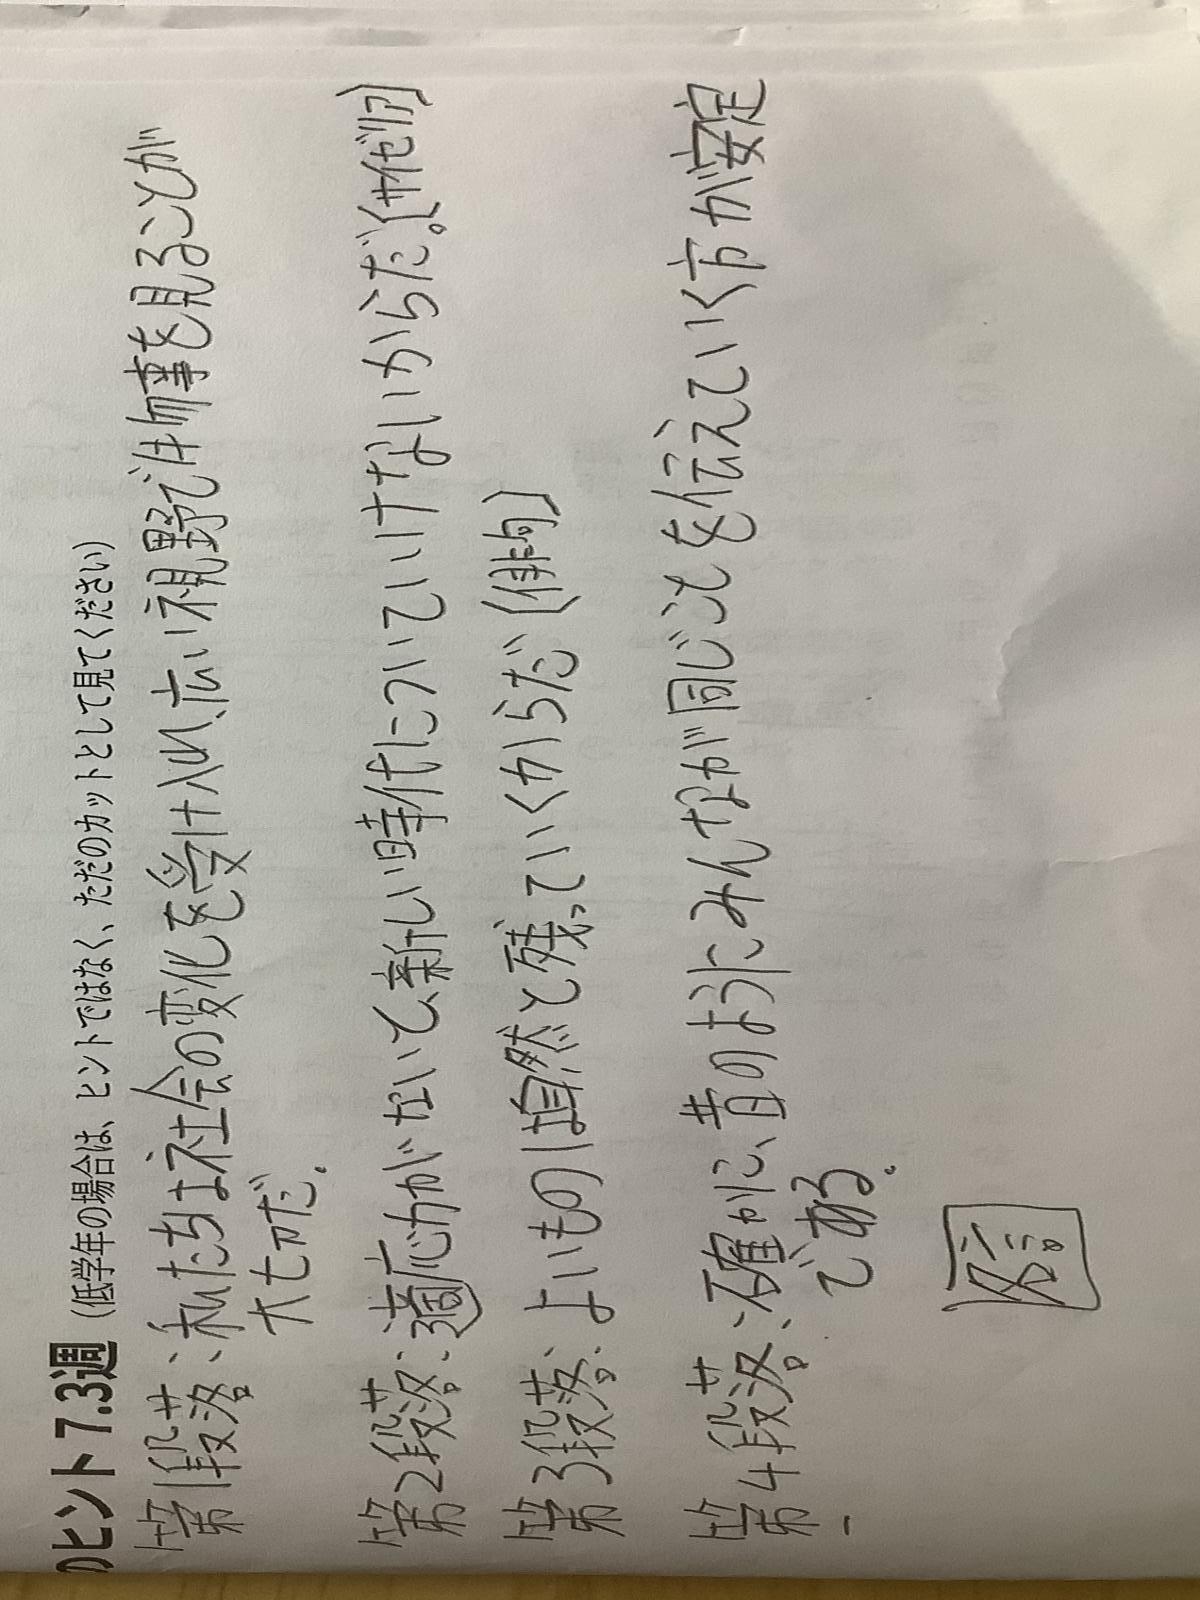 のヒント 7.3週 (低学年の場合は、ヒントではなく、ただのカットとして見てください)
第1段落:私たちは社会の変化を受け入れ、広い視野で物事を見ることが
大切だ。
第2段落:適応力がないと、新しい時代についていけないからだ。(サイゼリア)
第3段落:よいものは自然と残っていくからだ(俳句)
第4段落:確かに、昔のようにみんなが同じことを伝えていく方が安定
である。